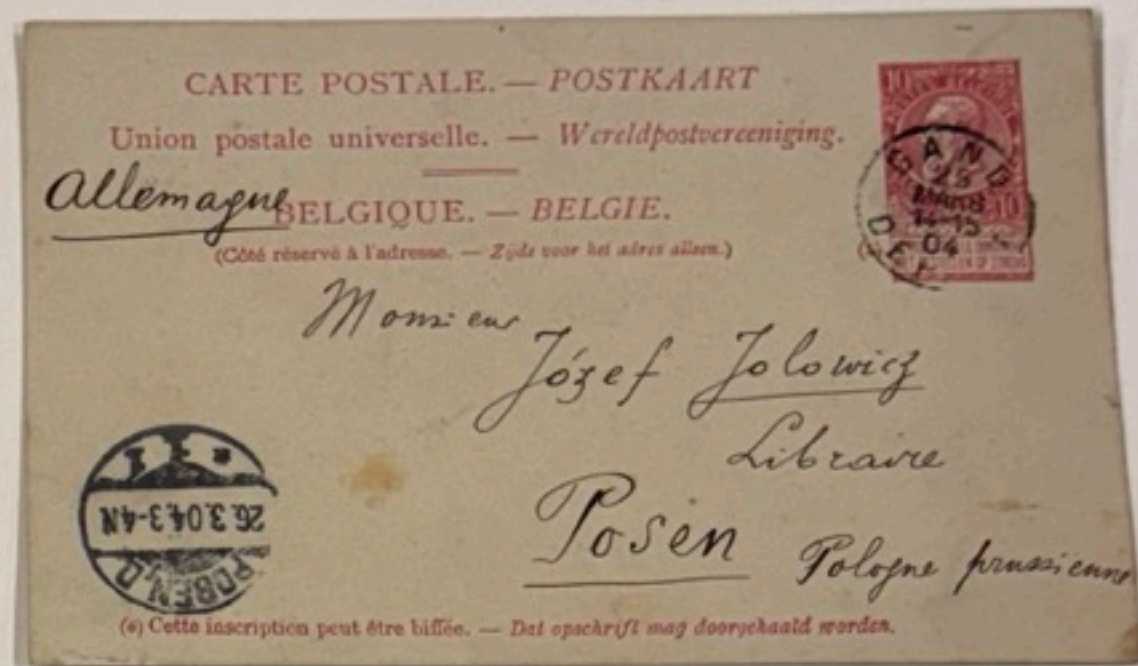 CARTE POSTALE. — POSTKAART
Union postale universelle. — Wereldpostvereeniging.
Allemagne
BELGIQUE. — BELGIE.
(Côté réservé à l'adresse. — Zijde voor het adres alleen.)
10 10
GAND
25
MARS
14-15
04
Monsieur
Józef Jolowicz
Libraire
Posen
Pologne prussienne
26.3.04.3-4N
POSEN.O.
1
(a) Cette inscription peut être biffée. — Dat opschrift mag doorgehaald worden.